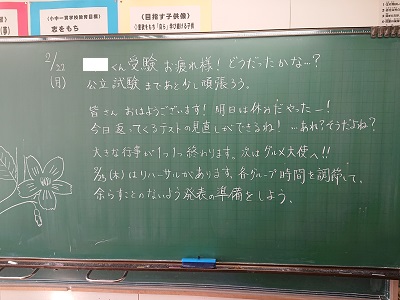 《小中一貫学校教育目標》
志をもち
《目指す子供像》
2/22
(月)
くん受験 お疲れ様! どうだったかな…?
公立試験まであと少し頑張ろう。
皆さん おはようございます! 明日は休みだやったー!
今日返ってくるテストの見直しができるね! …あれ?そうだよね?
大きな行事が1つ1つ終わります。次はグルメ大使へ!!
2/25(木)はリハーサルがあります。各グループ時間を調節して、
余らすことのないよう発表の準備をしよう。